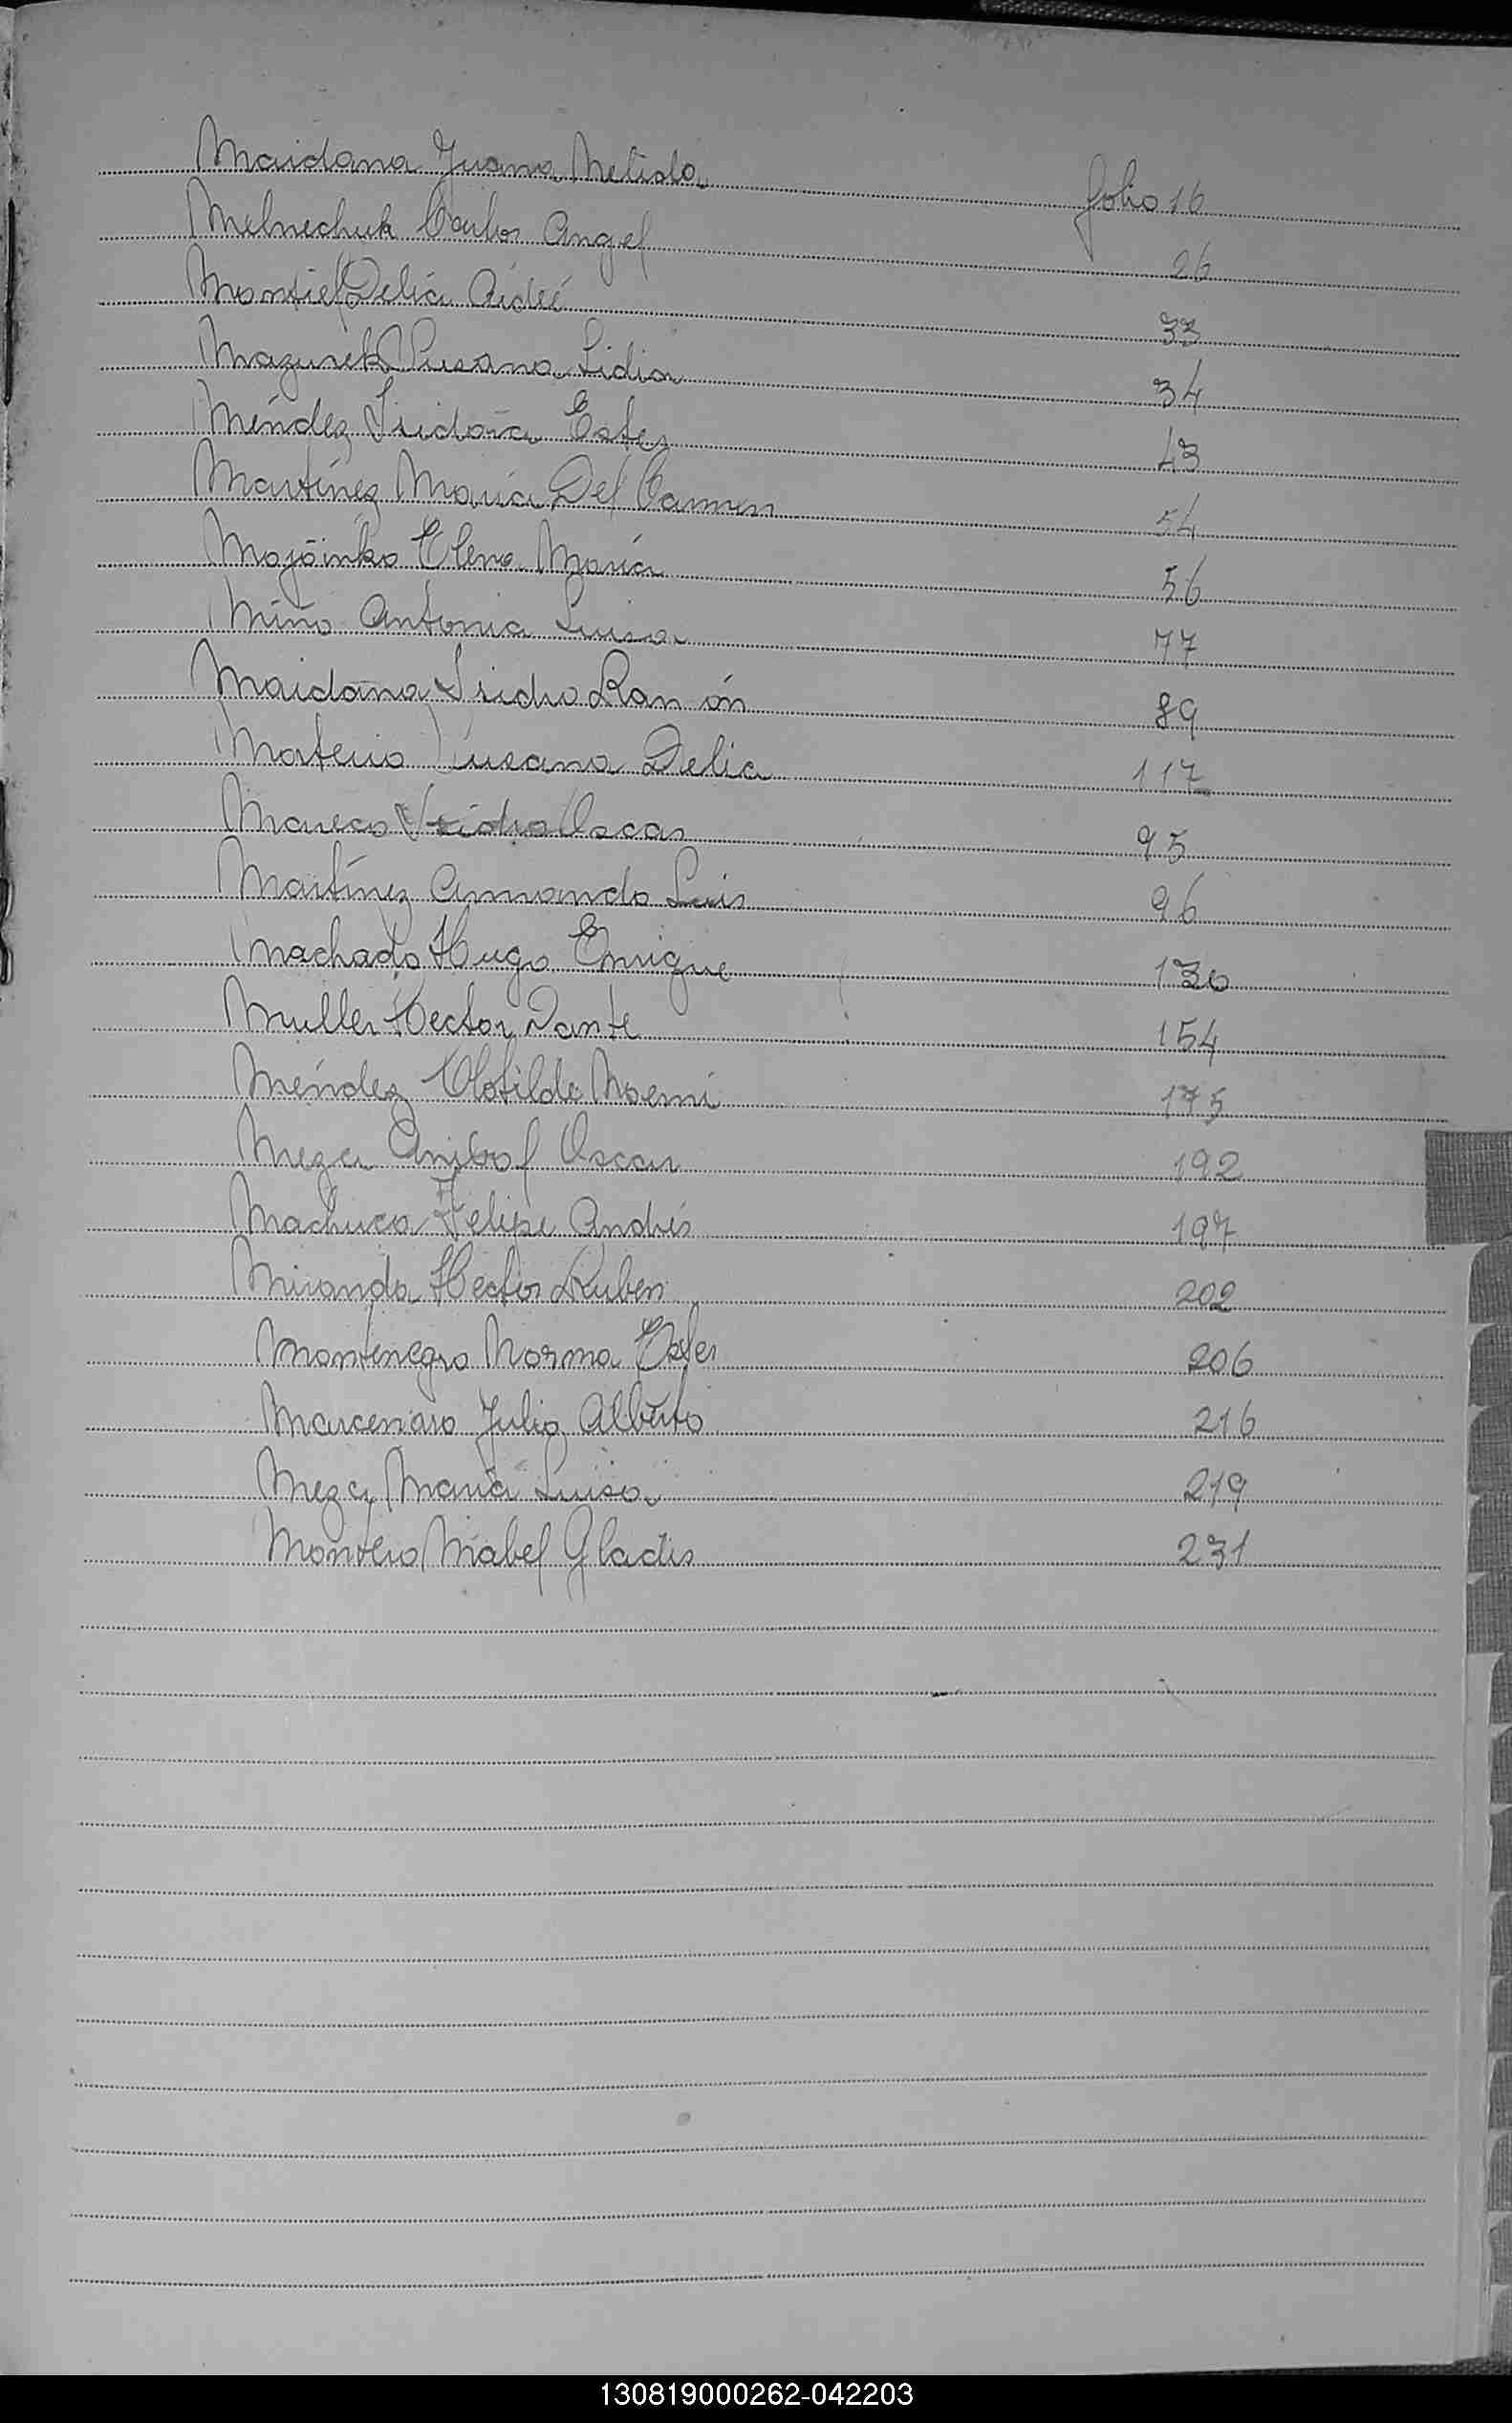 Maidana Juana Melida folio 16
Melnechuk Carlos Angel 26
Montiel Delia Aideé 33
Mazurek Susana Lidia 34
Méndez Isidora Ester 43
Martínez María Del Carmen 54
Elena María 56
Miño Antonia Luisa 77
Maidana Isidro Ramón 89
Susana Delia 117
Mareco Isidro Oscar 95
Martínez Armando Luis 96
Machado Hugo Enrique 130
Muller Hector Dante 154
Méndez Clotilde Noemí 175
Meza Anibal Oscar 192
Machuca Felipe Andrés 197
Miranda Hector Ruben 202
Montenegro Norma Ester 206
Marcenaro Julio Alberto 216
Meza María Luisa 219
Montero Mabel Gladis 231
130819000262-042203